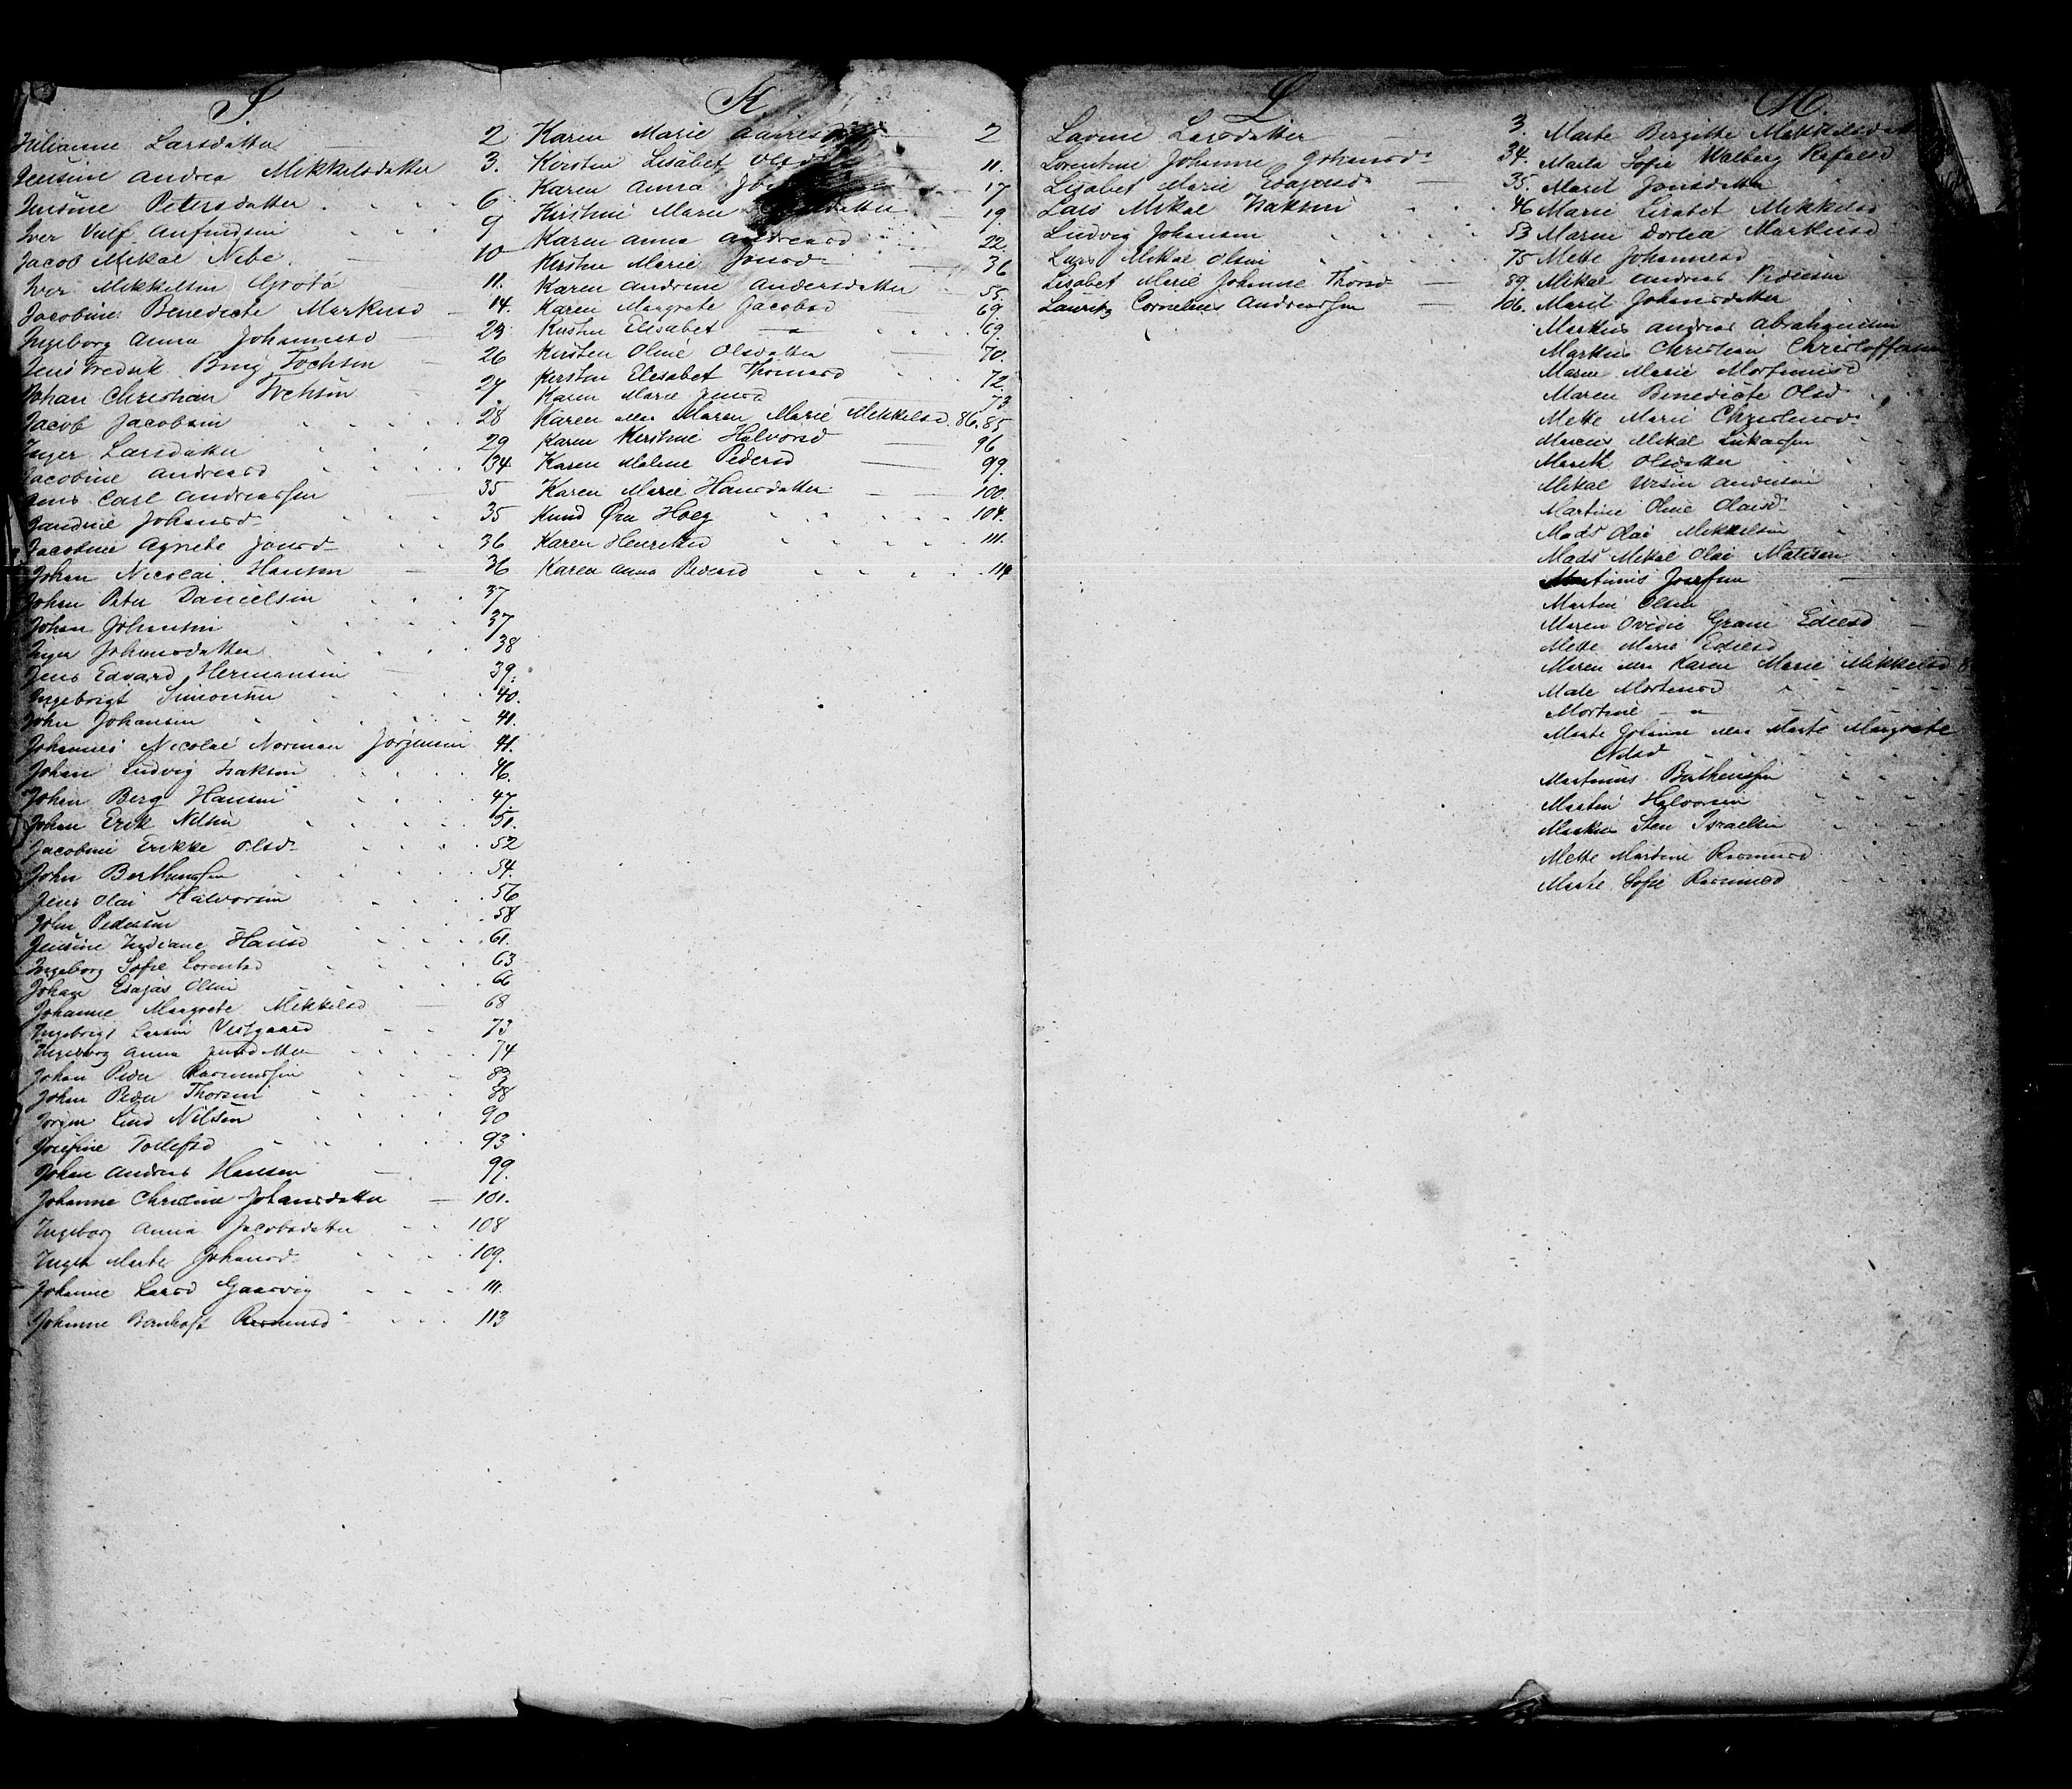 J
Julianne Larsdatter 2
Jensine Andrea Mikkelsdatter 3.
Jensine Petersdatter 6
Iver Vulf Anfindsen 9
Jacob Mikal Nebe 10
Iver Mikkelsen Grotø 11.
Jacobine Benedicte Markusd 14.
Ingeborg Anna Johannesd 23.
Jens Fredrik Bing Tochsen 26
Johan Christian Tochsen 27.
Jacob Jacobsen 28
Inger Larsdatter 29
Jacobine Andreasd 34
Jens Carl Andreassen 35
Jandine Johansd 35
Jacobine Agnete Jonsd 36
Johan Nicolai Hansen 36
Johan Peter Danielsen 37
Johan Johansen 37
Inger Johansdatter 38
Jens Edvard Hermansen 39.
Ingebrigt Simonsen 40.
John Johansen 41.
Johannes Nicolai Norman Jørgensen 41.
Johan Ludvig Isaksen 46.
Johan Berg Hansen 47.
Johan Erik Nilsen 51.
Jacobine Erikke Olsd 52
John Berthenssen 54.
Jens Olai Halvorsen 56
John Pedersen 58
Jensine Lydiane Hansd 61.
Ingeborg Sofie Lorentsd 63
Johan Esajas Olsen 66
Johanne Margrete Mikkelsd 68
Ingebrigt Larsen Vestgaard 73
Ingeborg Anna Jensdatter 74
Johan Peder Rasmussen 83
Johan Peder Thorsen 88
Jørgen Lind Nilsen 90
Josefine Tollefsd 93
Johan Andreas Hansen 99.
Johanne Christine Johansdatter 101.
Ingeborg Anna Jacobsdatter 108
Inger Marte Johansd 109.
Johanne Larsd Gaasvig 111.
Johanne Bernhoft Rasmusd 113
K
Karen Marie 2
Kirsten Lisabet Olsd 11.
Karen Anna 17
Kirstine Marie 19.
Karen Anna Andreasd 22
Kirsten Marie Jonsd 36
Karen Andrine Andersdatter 55.
Karen Margrete Jacobsd 69
Kirsten Elisabet — " 69.
Kirsten Oline Olsdatter 70.
Kirsten Elisabet Thomasd 72.
Karen Marie Jensd 73
Karen eller Maren Marie Mikkelsd. 86, 85
Karen Kirstine Halvorsd 96
Karen Malene Pedersd 99.
Karen Marie Hansdatter 100.
Knud Øre Høeg 104.
Karen Henriksd 111.
Karen Anna Pedersd 114
L
Lavine Larsdatter 3.
Lorentine Johanne Johansd 34.
Lisabet Marie Esajasd 35.
Lars Mikal Isaksen 46
Ludvig Johansen 53
Lars Mikal Olsen 75
Lisabet Marie Johanne Thorsd 89.
Lauritz Cornelius Andreassen 106.
M.
Marte Bergitte Mikkelsdat
Marta Sofie Walberg Rafaelsd
Marit Jonsdatter
Marie Lisabet Mikkelsd
Maren Dortea Markusd
Mette Johannesd
Mikal Andreas Pedersen
Marit Johansdatter
Markus Andreas Abrahamsen
Markus Christian Christoffersen
Maren Marie Mortensd
Maren Benedicte Olsd
Mette Marie Christensd
Marcus Mikal Lukassen
Marit Olsdatter
Mikal Ursin Andersen
Martine Oline Olaisd
Mads Olai Mikkelsen
Mads Mikal Olai Matisen
Martinus Josefsen
Martin Olsen
Maren Ovidie Gram Edisd
Mette Marie Edisd
Maren eller Karen Marie Mikkelsd 8
Male Mortensd
Mortine — "
Marte Johanne eller Marte Margrete
Nilsd
Martinus Berthenssen
Martin Halvorsen
Markus Sten Israelsen
Mette Martine Rasmusd
Marte Sofie Rasmusd